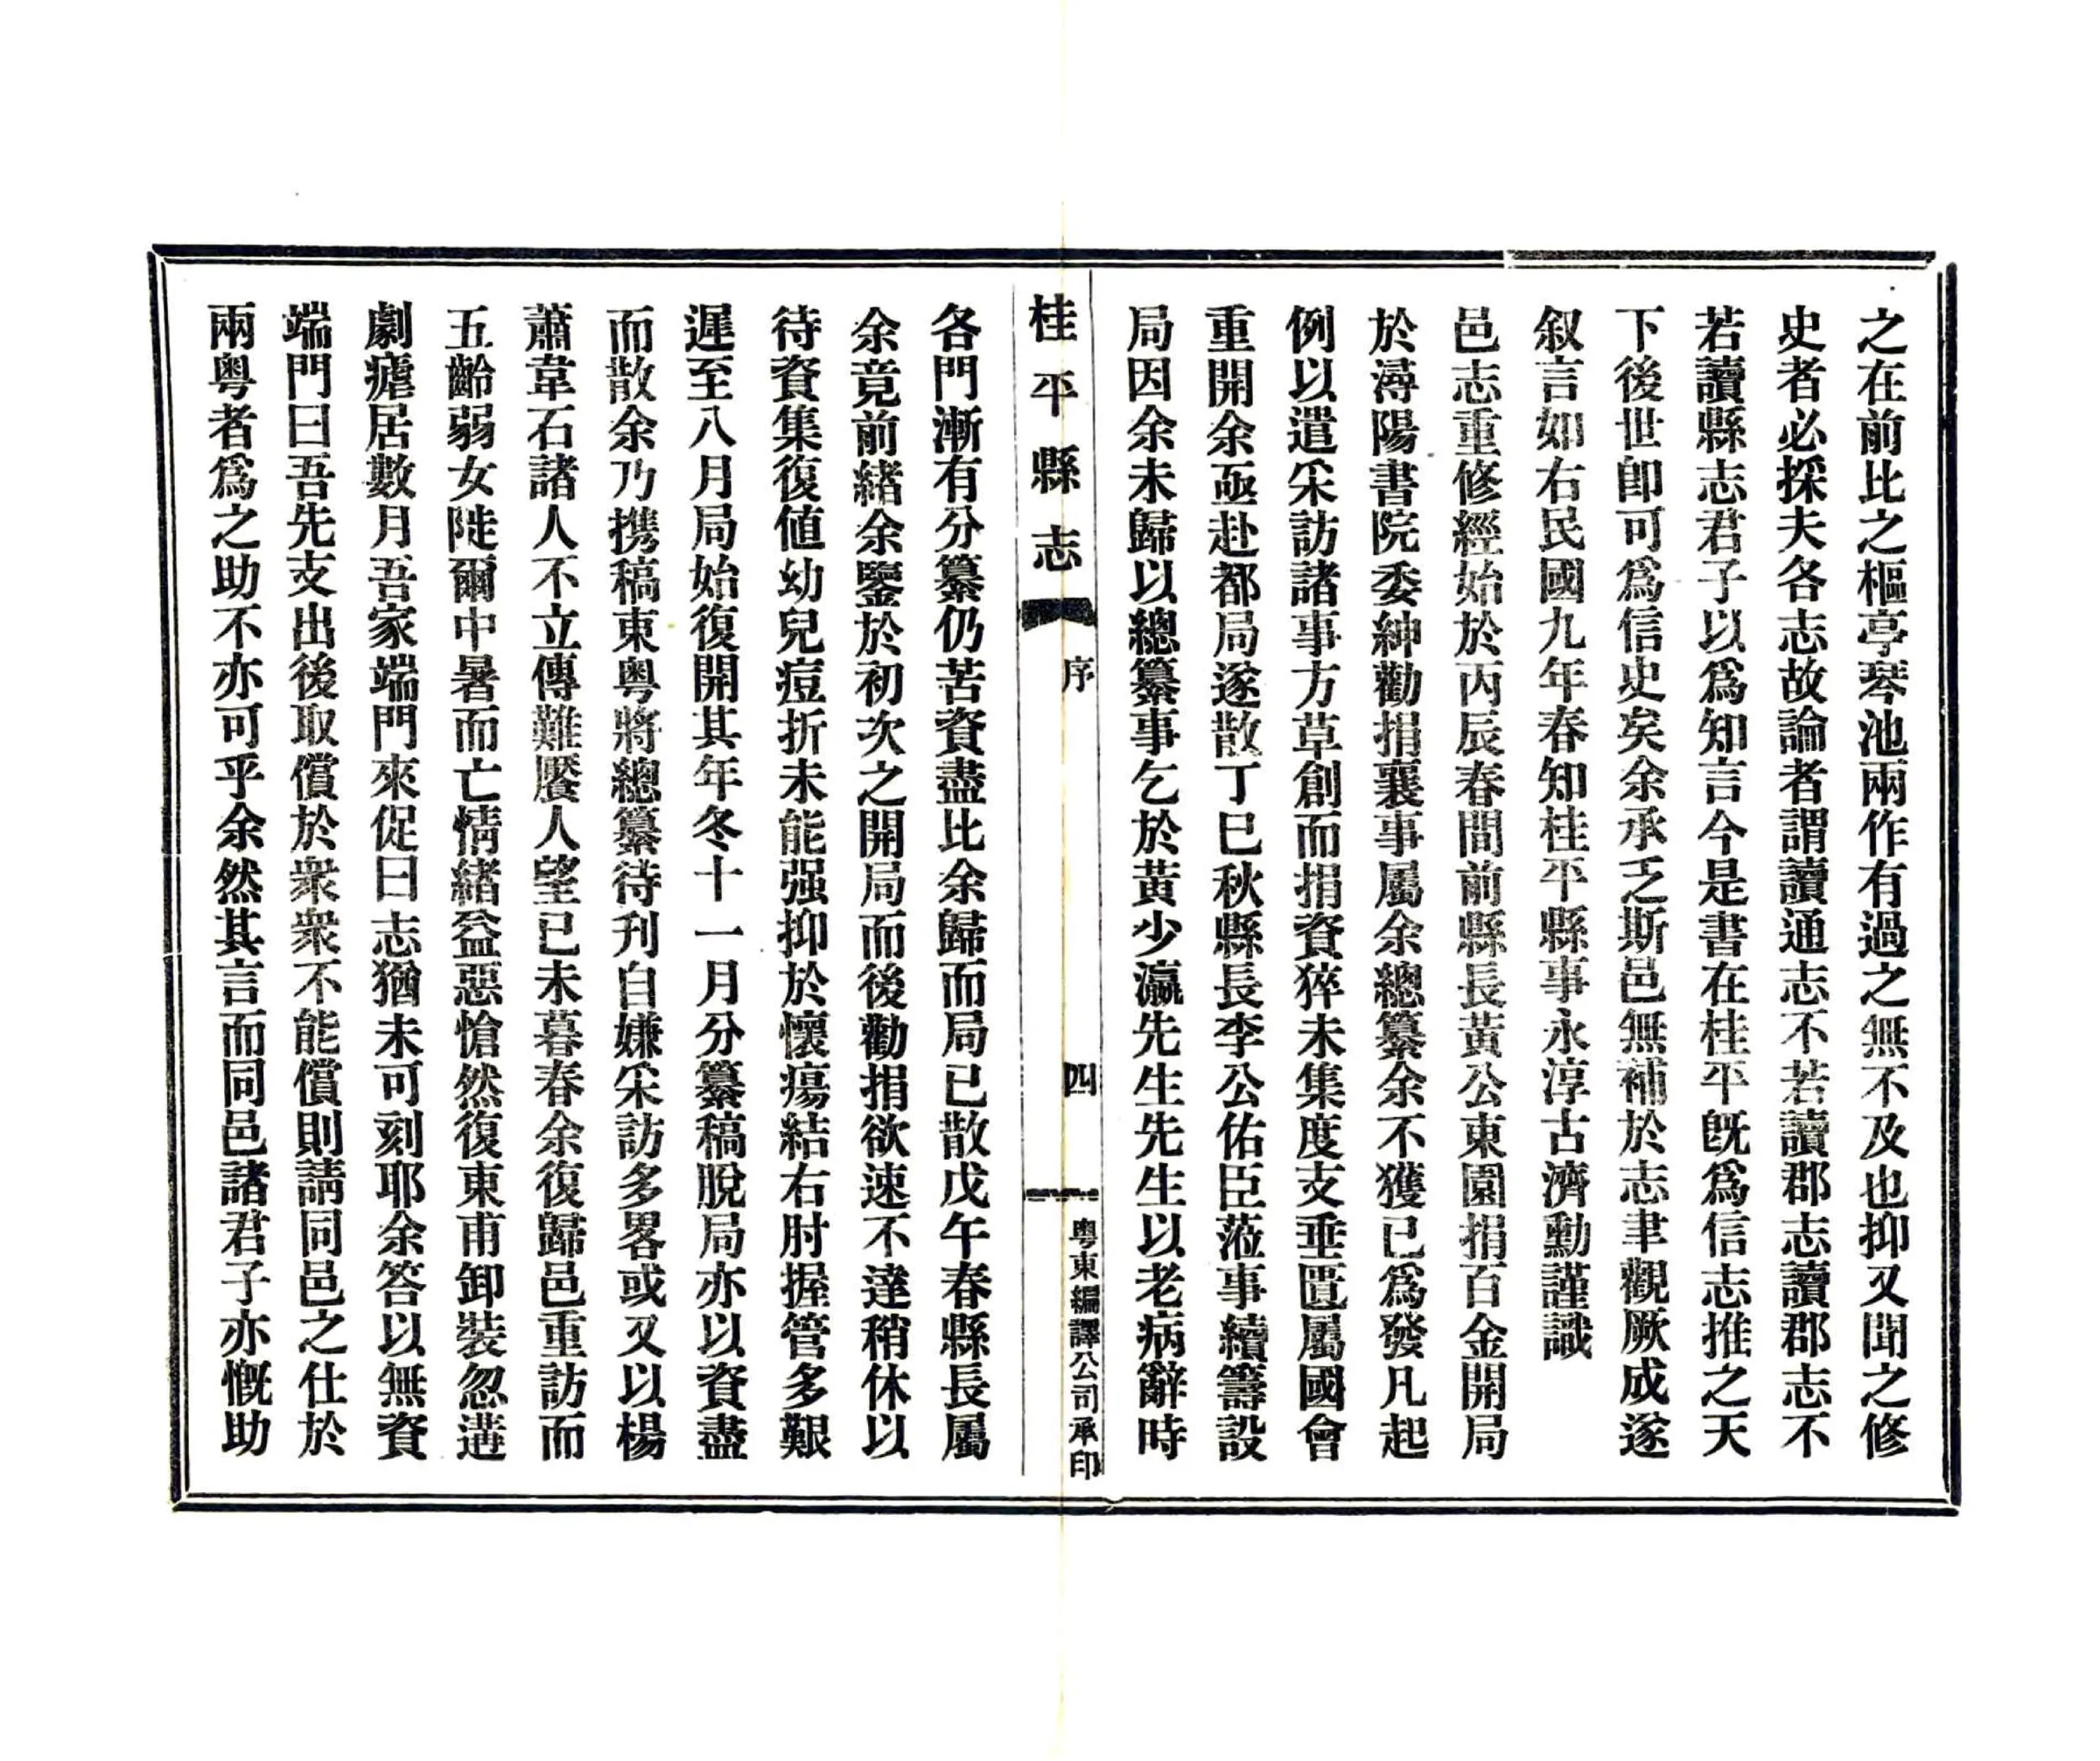 之在前比之樞亭琴池兩作有過之無不及也抑又聞之修
史者必採夫各志故論者謂讀通志不若讀郡志讀郡志不
若讀縣志君子以爲知言今是書在桂平旣爲信志推之天
下後世卽可爲信史矣余承乏斯邑無補於志聿觀厥成遂
叙言如右民國九年春知桂平縣事永淳古濟勳謹識
邑志重修經始於丙辰春間前縣長黃公東園捐百金開局
於潯陽書院委紳勸捐襄事屬余總纂余不獲已爲發凡起
例以遣采訪諸事方草創而捐資猝未集度支垂匱屬國會
重開余亟赴都局遂散丁巳秋縣長李公佑臣蒞事續籌設
局因余未歸以總纂事乞於黃少瀛先生先生以老病辭時
桂平縣志
序
四
粵東編譯公司承印
各門漸有分纂仍苦資盡比余歸而局已散戊午春縣長屬
余竟前緒余鑒於初次之開局而後勸捐欲速不達稍休以
待資集復値幼兒痘折未能强抑於懷瘍結右肘握管多艱
遲至八月局始復開其年冬十一月分纂稿脫局亦以資盡
而散余乃携稿東粵將總纂待刋自嫌采訪多畧或又以楊
蕭韋石諸人不立傳難饜人望已未暮春余復歸邑重訪而
五齡弱女陡爾中暑而亡情緒益惡愴然復東甫卸裝忽遘
劇瘧居數月吾家端門來促曰志猶未可刻耶余答以無資
端門曰吾先支出後取償於衆衆不能償則請同邑之仕於
兩粵者爲之助不亦可乎余然其言而同邑諸君子亦慨助